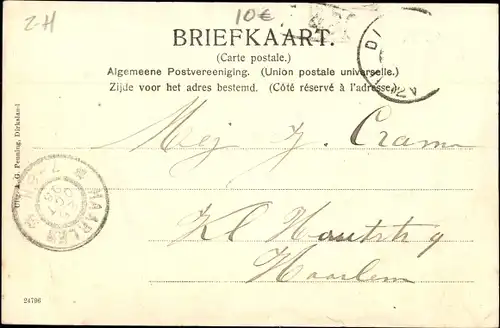 2-H
10€
BRIEFKAART.
(Carte postale.)
Algemeene Postvereeniging. (Union postale universelle.)
Zijde voor het adres bestemd. (Côté réservé à l'adresse.)
Mej J. Cram
Kl Houtstr 9
Haarlem
HAARLEM
Uitg. A. G. Penning, Dirksland
24796